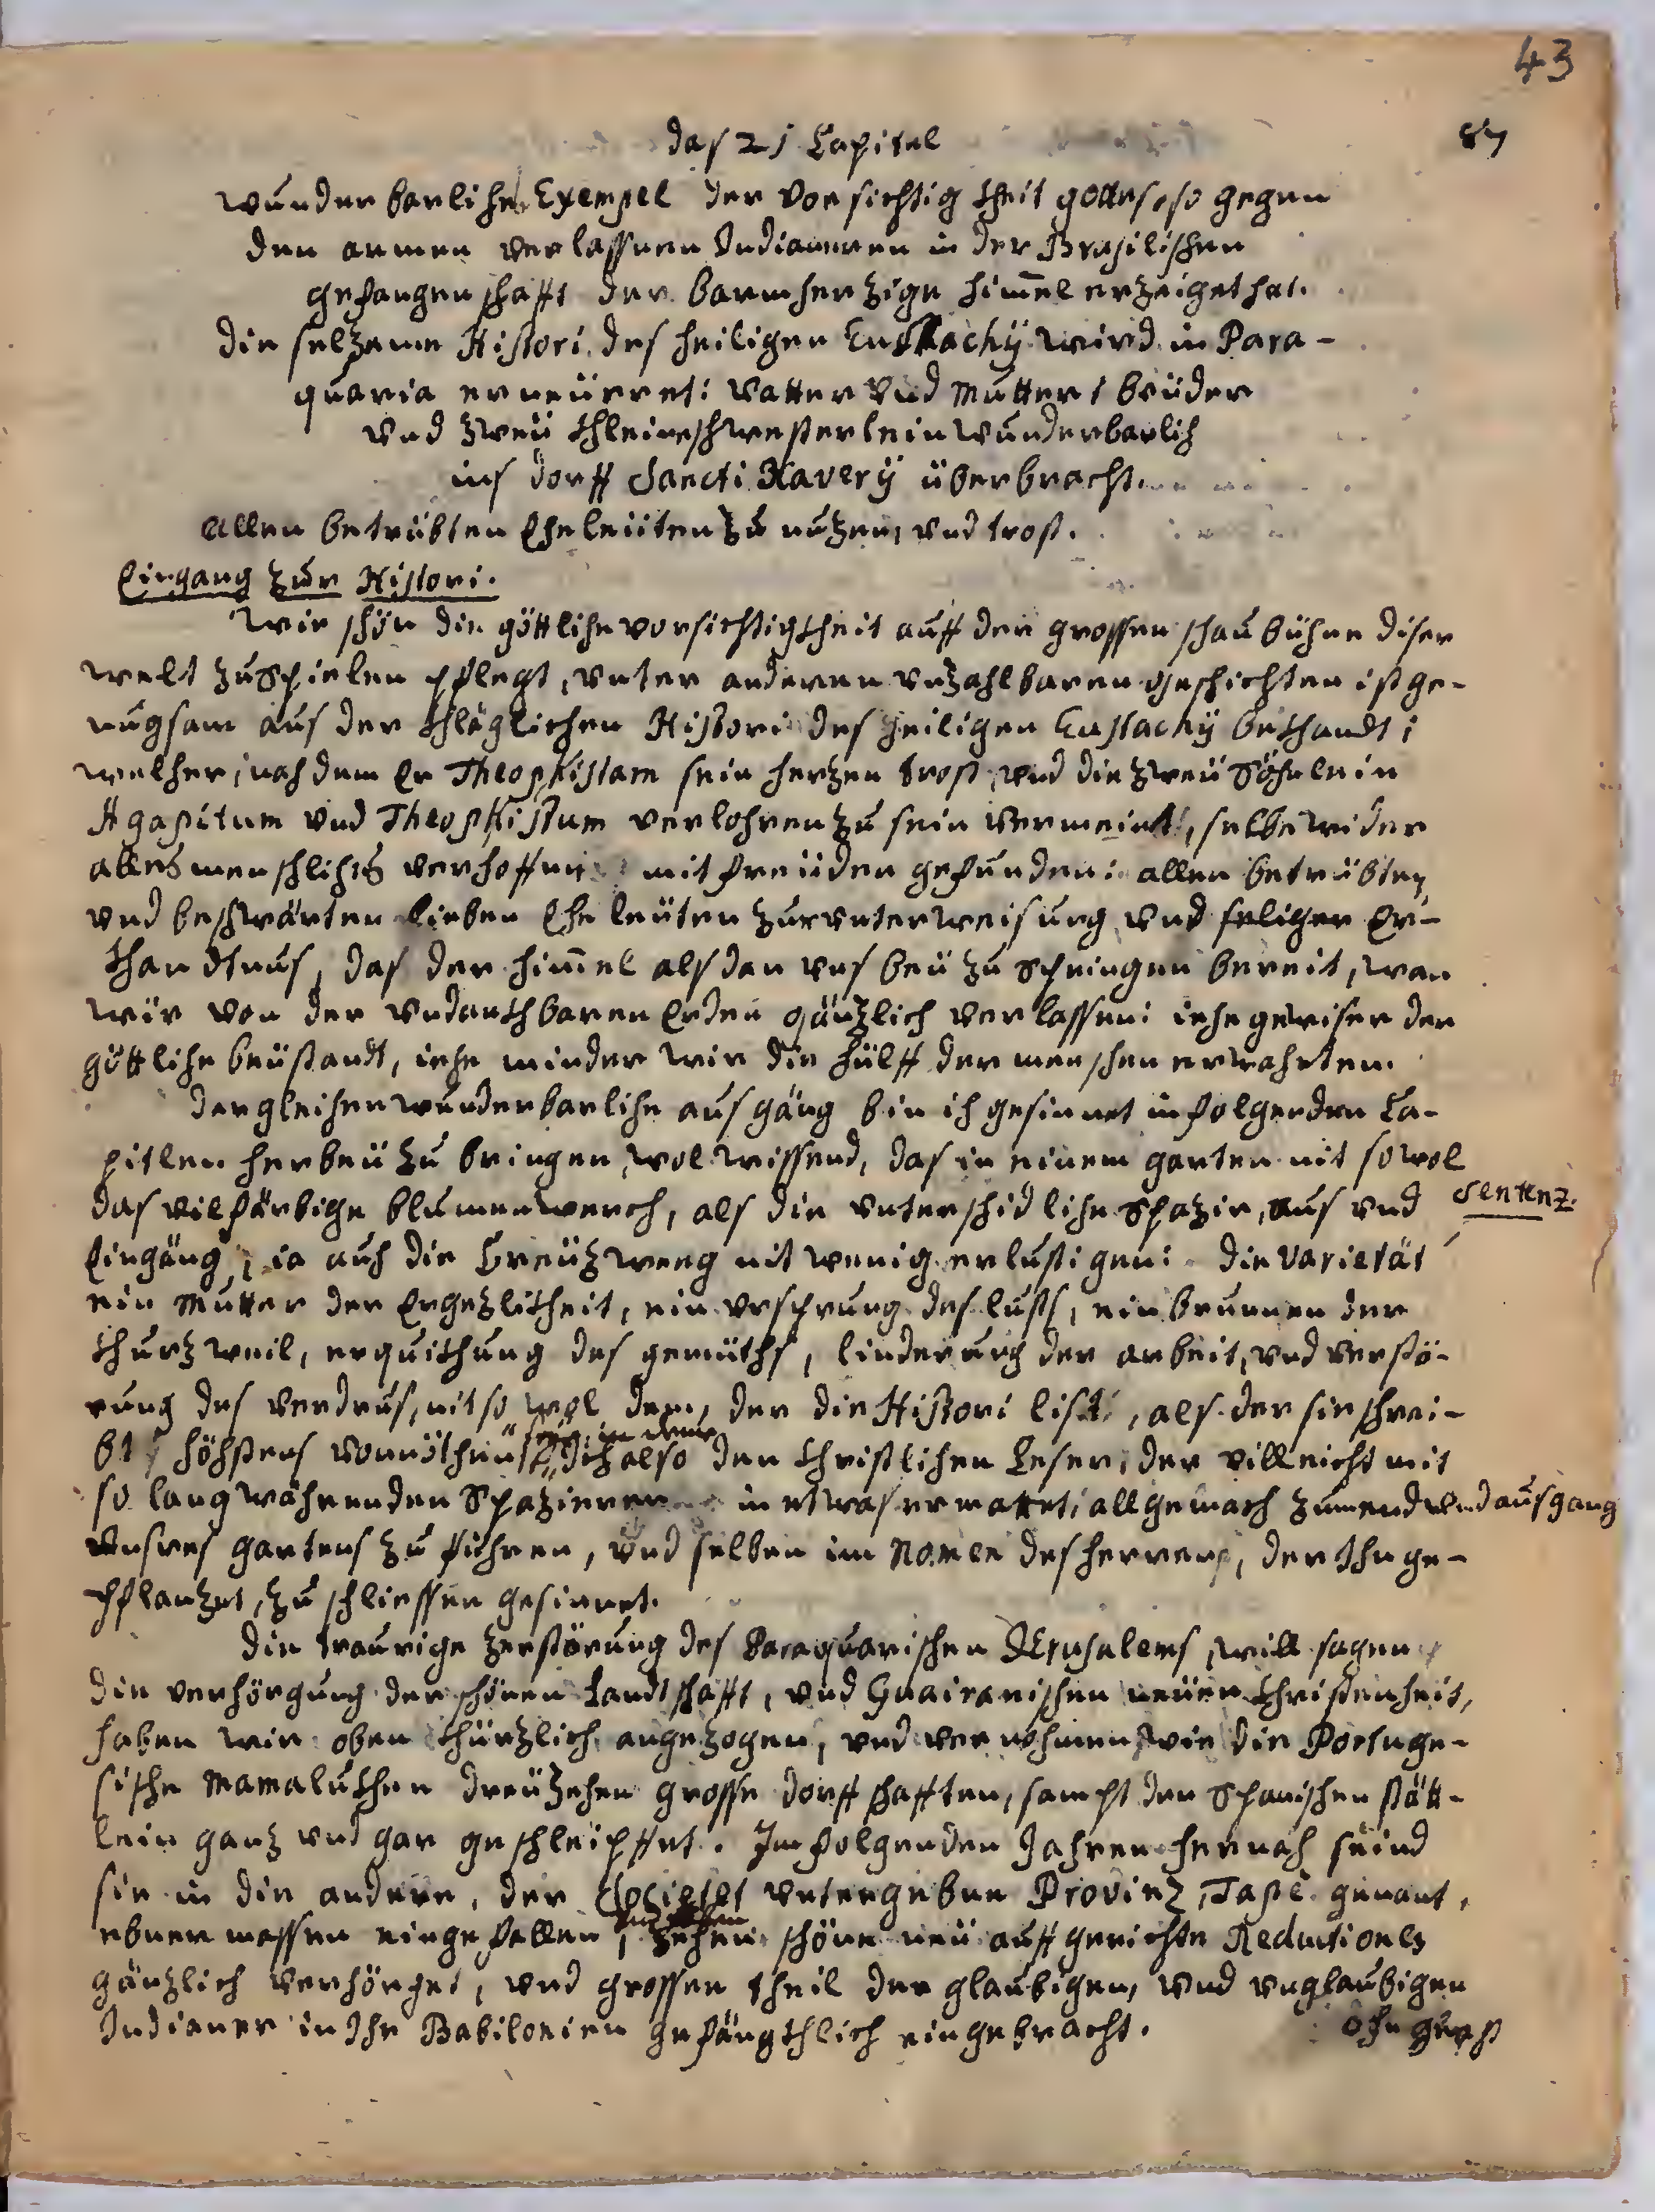 43
87
das 21 Capitel
wunderbarliche Exempel der vorsichtigkheit gottes, so gegen
den armen verlassnen Indianeren in der Brasilischen
gefangenschafft der barmherzige himmel erzeiget hat.
die selzame Histori des heiligen Eustachÿ wird in Para-
quaria erneürret: vatter vnd mutter / brüder
vnd zweü khleine schwesterlein wunderbarlich
ins dorff Sancti Xaverÿ überbracht.
Allen betrübten Eheleüten zu nuzen, vnd trost.
Eingang zur Histori.
Wie schön die göttliche vorsichtigkheit auff der grossen schaubühne diser
welt zuspielen pflegt, vnter anderen vnzahlbaren geschichten ist ge-
nugsam aus der khläglichen Histori des heiligen Eustachÿ bekhandt;
welcher, nach dem Er Theophistam sein herzen trost, vnd die zweü Söhnlein
Agapitum vnd Theophistum verlohren zu sein vermeint, selbe wider
alles menschliches verhoffen mit freüden gefunden: allen betrübten,
vnd beschwärten lieben Eheleüten zur vnterweisung vnd seliger Er-
khandtnus, das der himmel alsdan vns beü zu springen bereit, wan
wir von der vndankhbaren Erden gänzlich verlassen: iehe gewiser der
göttliche beüstandt, iehe minder wir die hülff der menschen erwahrten.
dergleichen wunderbarliche ausgäng bin ich gesinnet in folgenden Ca-
pitlen herbeü zu bringen, wol wissend, das in einem garten nit so wol
das vilfärbige blumenwerch, als die vnterschidliche Spazir, aus vnd
Sentenz.
Eingäng, ia auch die Creüzweeg nit wenig erlustigen: die Varietät
ein mutter der Ergezlikheit, ein vrsprung des lusts, ein brunnen der
khurzweil, erquikhung des gemüths, linderung der arbeit, vnd verstö-
rung des verdrus, nit so wol dem, der die Histori list, als der sie schrei-
bt, höchstens vonnöthen ich also den christlichen Leser, der villeicht mit
so lang währenden Spazieren in etwas ermattet, allgemach zum end vnd ausgang
vnsres gartens zu führen, vnd selben im Namen des herrens, der Ihn ge-
pflanzet, zu schliessen gesinnet.
die traurige zerstörung des Paraquarischen Jerusalems, will sagen
die verhörgung der schönen Landtschafft, vnd Guairanischen neüen Christenheit,
haben wir oben khürzlich angezogen, vnd vernohmen, wie die Portuge-
sische Mamalukhen dreüzehen grosse dorffschafften, sampt den Spanischen stätt-
lein ganz vnd gar geschleipffet. Im folgenden Jahren hernach seind
sie in die andere, der Societet vntergebne Provinz, Tape genant,
ebner massen eingefallen, zehen schöne neü auffgerichte Reductiones
gänzlich verhörget, vnd grossen theil der glaubigen, vnd vnglaubigen
Indianer in Ihr Babilonien gefängkhlich eingebracht.